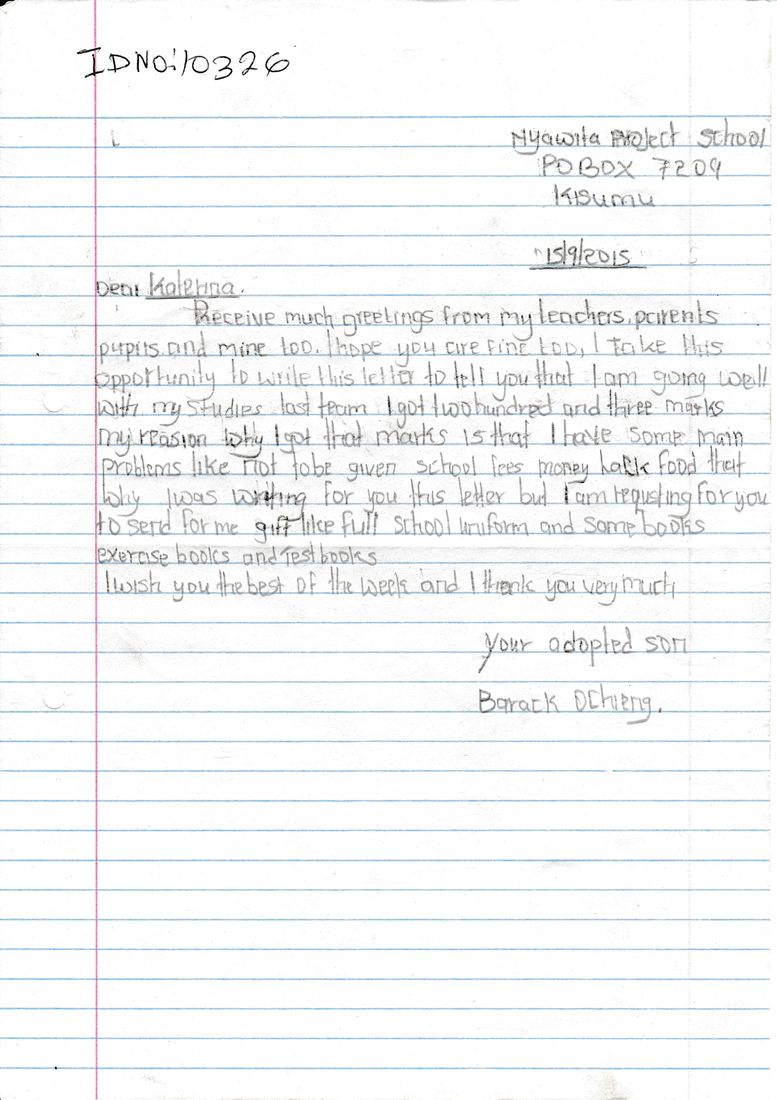 IDNO:10326
Nyawita Project School
PO BOX 7209
Kisumu
15/9/2015
Dear Katerina.
Receive much greetings from my teachers, parents
pupils and mine too. I hope you are fine too, I take this
opportunity to write this letter to tell you that I am going well
with my studies last team I got two hundred and three marks
my reason why I got that marks is that I have some main
problems like not tobe given school fees money hack food that
why I was writing for you this letter but I am requsting for you
to send for me gift like full school uniform and some books
exercise books and testbooks
I wish you the best of the week and I thank you very much
your adopted son
Barack Ochieng.